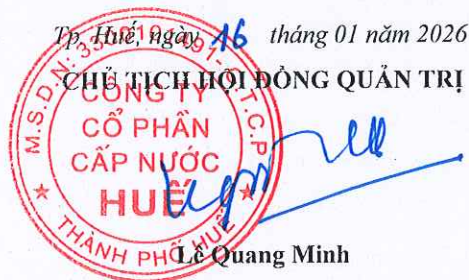 Tp. Huế, ngày 16 tháng 01 năm 2026
CHỦ TỊCH HỘI ĐỒNG QUẢN TRỊ
CÔNG TY
CỔ PHẦN
CẤP NƯỚC
HUẾ
THÀNH PHỐ HUẾ
Lê Quang Minh